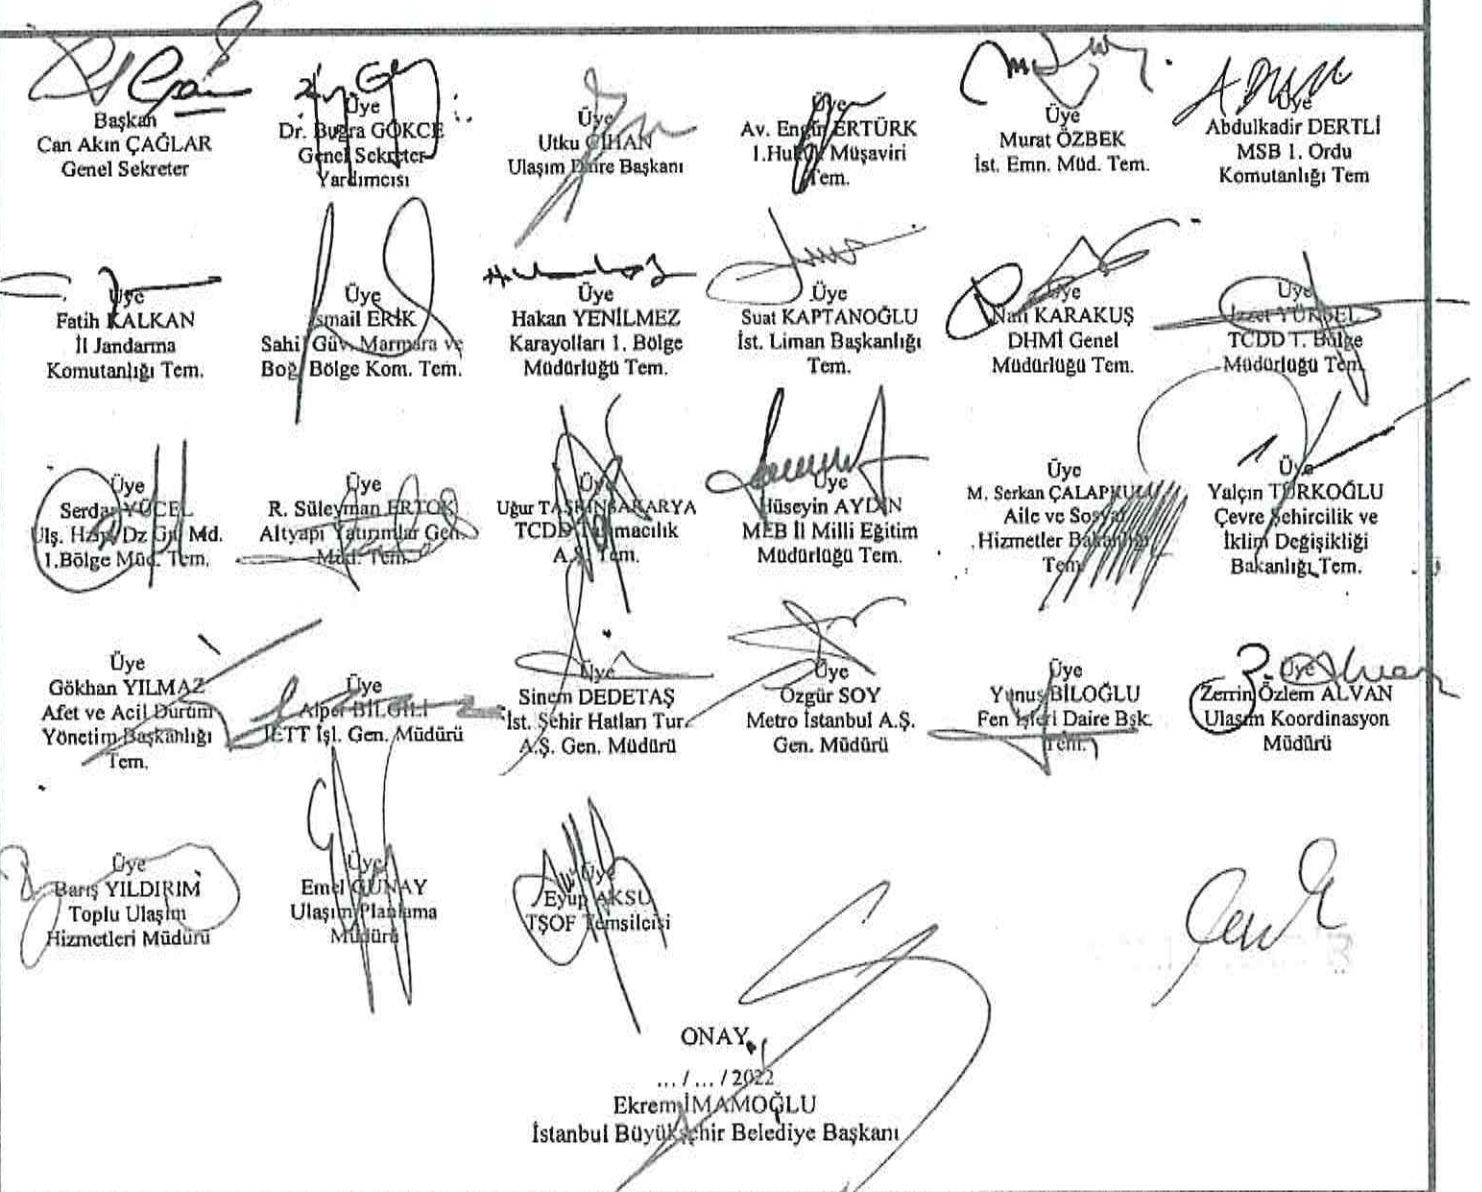 Başkan
Can Akın ÇAĞLAR
Genel Sekreter
Üye
Dr. Buğra GÖKCE
Genel Sekreter
Yardımcısı
Üye
Utku CİHAN
Ulaşım Daire Başkanı
Üye
Av. Engin ERTÜRK
1.Hukuk Müşaviri
Tem.
Üye
Murat ÖZBEK
İst. Emn. Müd. Tem.
Üye
Abdulkadir DERTLİ
MSB 1. Ordu
Komutanlığı Tem
Üye
Fatih KALKAN
İl Jandarma
Komutanlığı Tem.
Üye
İsmail ERİK
Sahil Güv. Marmara ve
Boğ. Bölge Kom. Tem.
Üye
Hakan YENİLMEZ
Karayolları 1. Bölge
Müdürlüğü Tem.
Üye
Suat KAPTANOĞLU
İst. Liman Başkanlığı
Tem.
Üye
KARAKUŞ
DHMİ Genel
Müdürlüğü Tem.
Üye
İzzet
TCDD 1. Bölge
Müdürlüğü Tem.
Üye
Serdar YÜCEL
Ulş. Hab. Md.
1.Bölge Müd. Tem.
Üye
R. Süleyman ERTOK
Altyapı Yatırımlar Gen.
Müd. Tem.
Üye
Uğur TAŞKINSAKARYA
TCDD Taşımacılık
A.Ş. Tem.
Üye
Hüseyin AYDIN
MEB İl Milli Eğitim
Müdürlüğü Tem.
Üye
M. Serkan ÇALAPKULU
Aile ve Sosyal
Hizmetler Bakanlığı
Tem.
Üye
Yalçın TÜRKOĞLU
Çevre Şehircilik ve
İklim Değişikliği
Bakanlığı Tem.
Üye
Gökhan YILMAZ
Afet ve Acil Durum
Yönetim Başkanlığı
Tem.
Üye
Alper BİLGİLİ
İETT İşl. Gen. Müdürü
Üye
Sinem DEDETAŞ
İst. Şehir Hatları Tur.
A.Ş. Gen. Müdürü
Üye
Özgür SOY
Metro İstanbul A.Ş.
Gen. Müdürü
Üye
Yunus BİLOĞLU
Fen İşleri Daire Bşk.
Tem.
Üye
Zerrin Özlem ALVAN
Ulaşım Koordinasyon
Müdürü
Üye
Barış YILDIRIM
Toplu Ulaşım
Hizmetleri Müdürü
Üye
Emel GÜNAY
Ulaşım Planlama
Müdürü
Üye
Eyüp AKSU
TŞOF Temsilcisi
ONAY
... / ... / 2022
Ekrem İMAMOĞLU
İstanbul Büyükşehir Belediye Başkanı